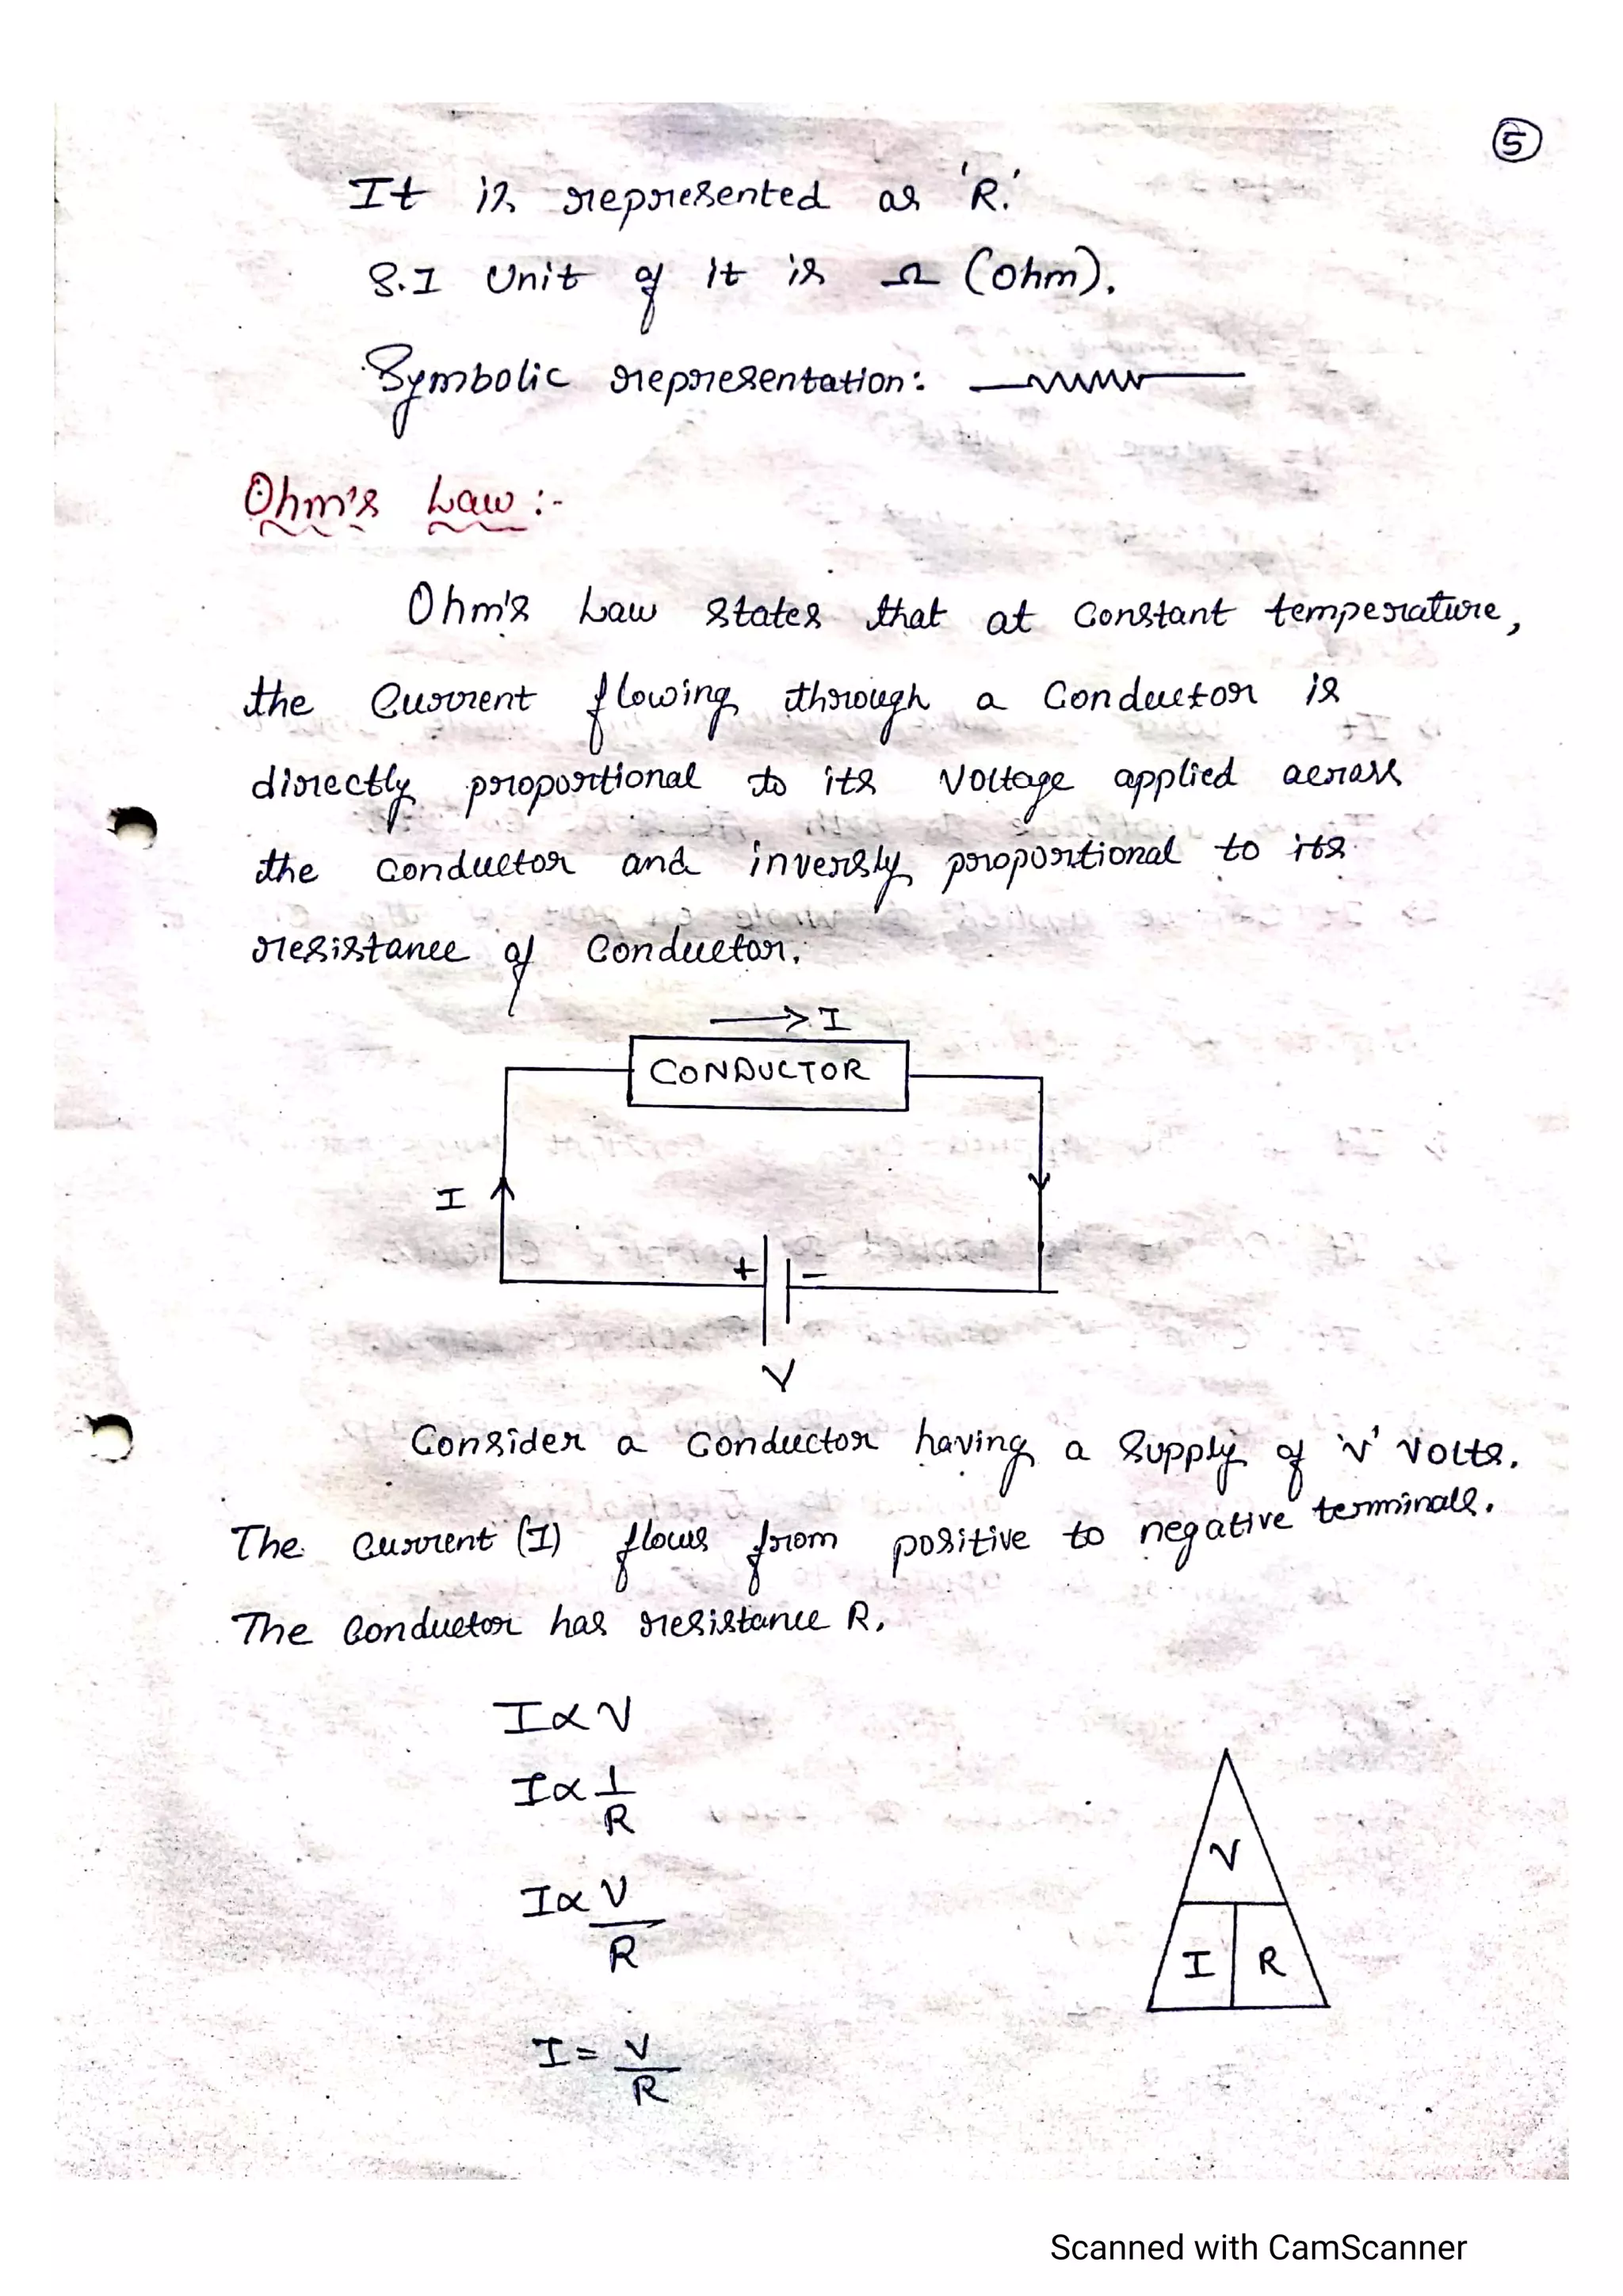 5
It is represented as 'R.'
S.I Unit of it is Ω (ohm).
Symbolic representation:
Ohm's Law :-
Ohm's Law states that at constant temperature,
the current flowing through a conductor is
directly proportional to its voltage applied across
the conductor and inversly proportional to its
resistance of conductor.
→ I
CONDUCTOR
I
+ −
V
Consider a conductor having a supply of 'V' volts.
The current (I) flows from positive to negative terminals.
The conductor has resistance R.
I ∝ V
I ∝ 1
R
I ∝ V
R
V
I R
I = V
R
Scanned with CamScanner